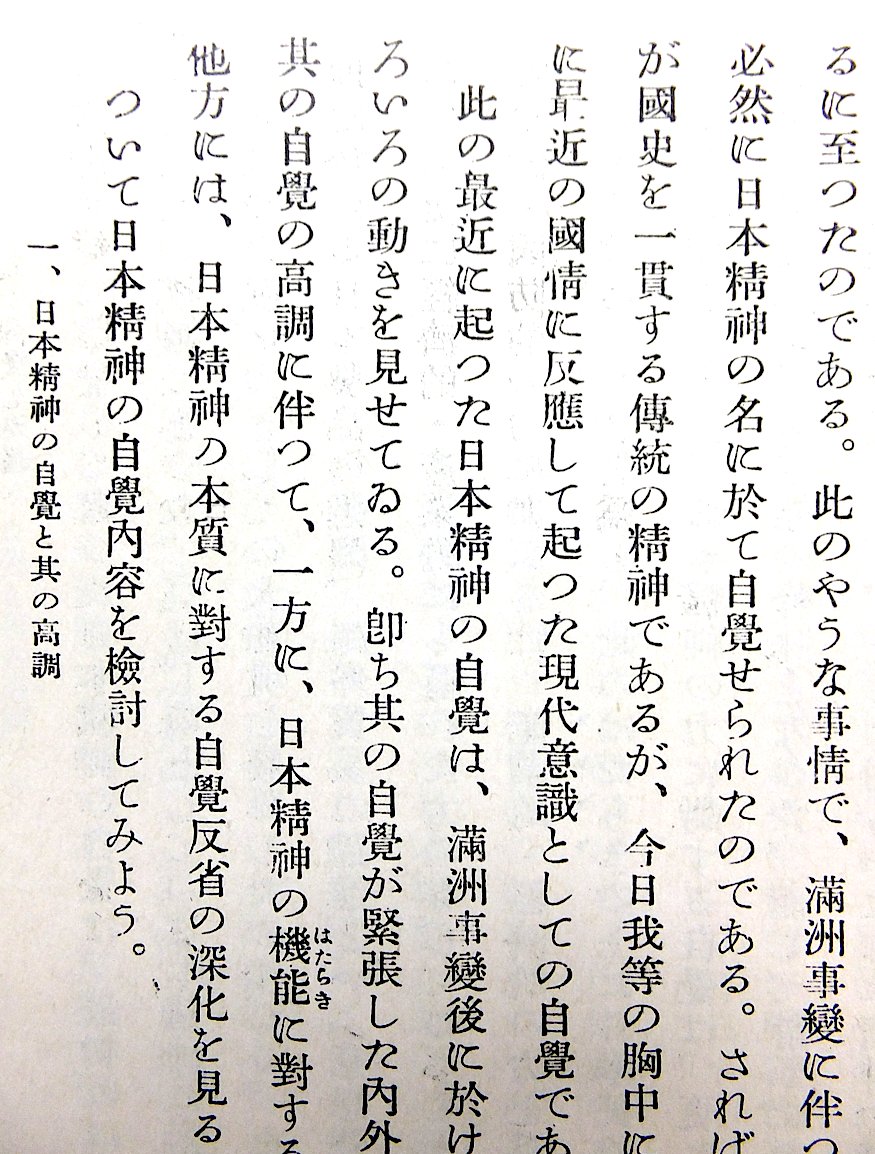 るに至つたのである。此のやうな事情で、滿洲事變に伴つ
必然に日本精神の名に於て自覺せられたのである。されば
が國史を一貫する傳統の精神であるが、今日我等の胸中に
に最近の國情に反應して起つた現代意識としての自覺であ
此の最近に起つた日本精神の自覺は、滿洲事變後に於け
ろいろの動きを見せてゐる。卽ち其の自覺が緊張した內外
其の自覺の高調に伴つて、一方に、日本精神の機能に對する
はたらき
他方には、日本精神の本質に對する自覺反省の深化を見る
ついて日本精神の自覺內容を檢討してみよう。
一、日本精神の自覺と其の高調